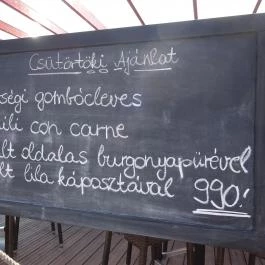 Csütörtöki Ajánlat
ségi gombócleves
ili con carne
lt oldalas burgonyapürével
lt lila káposztával 990.-